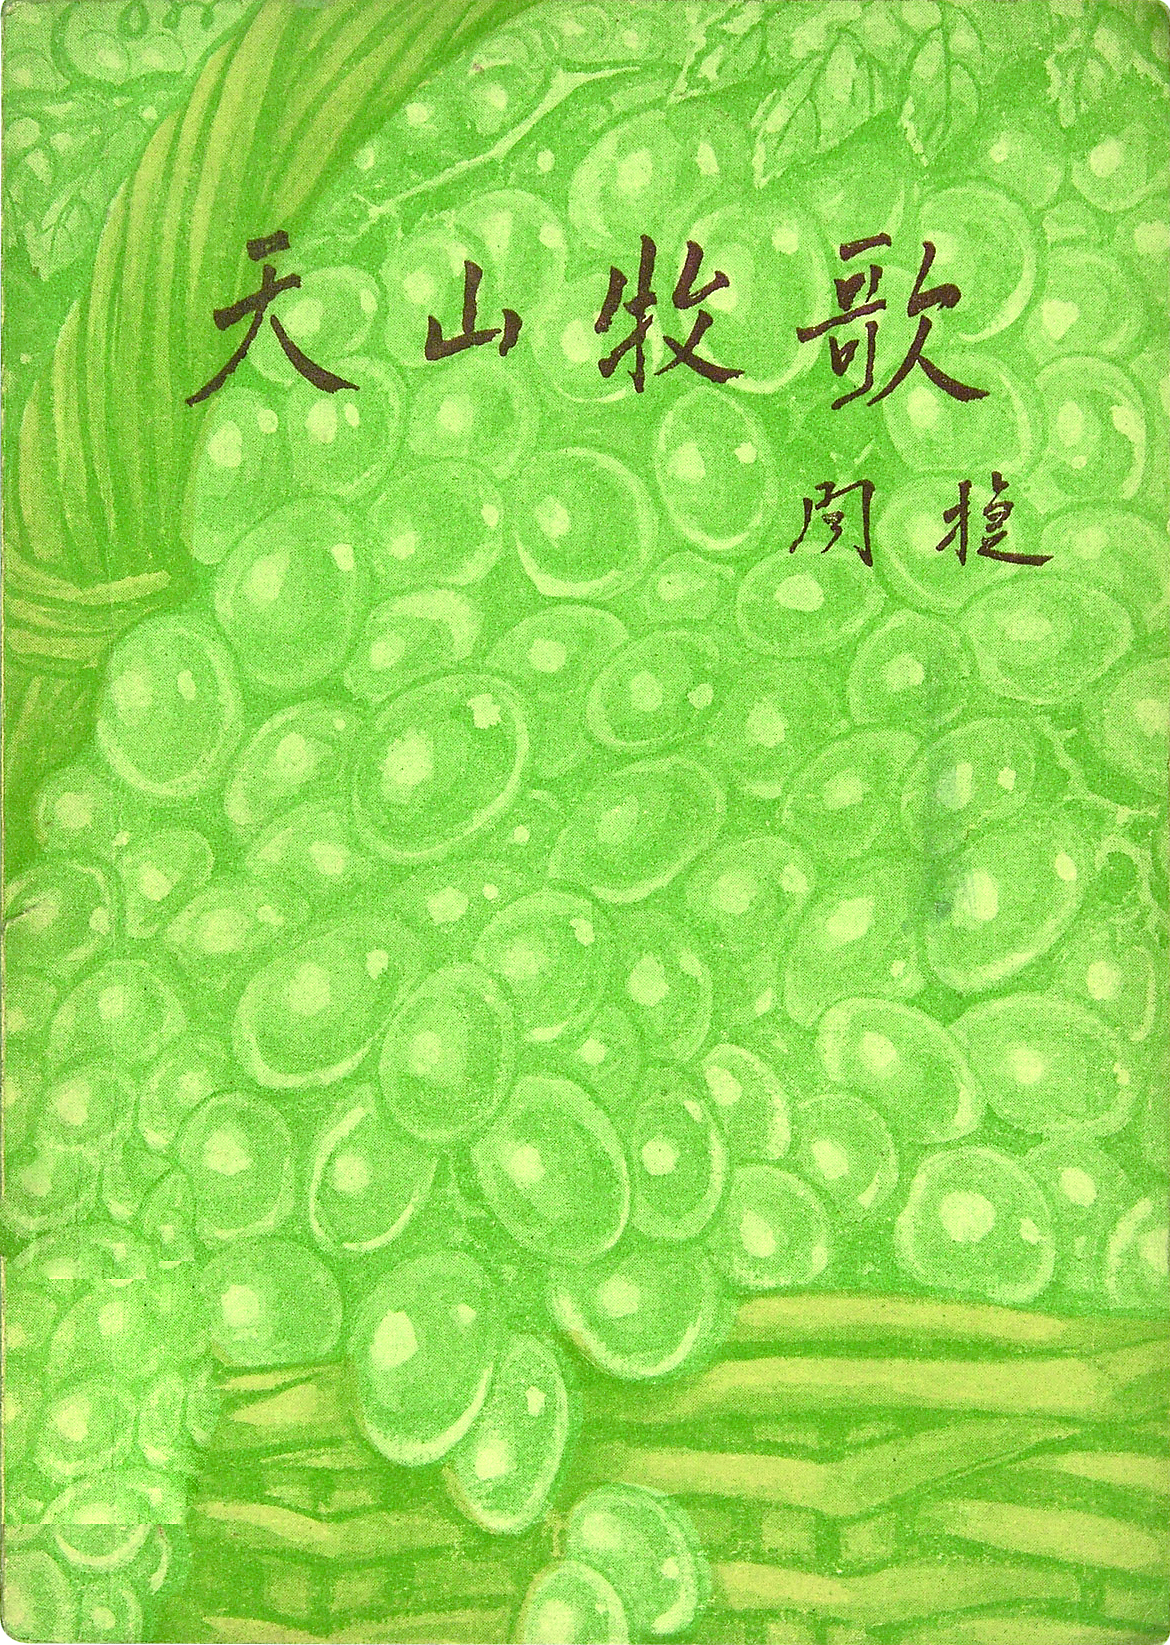 天山牧歌
闻捷